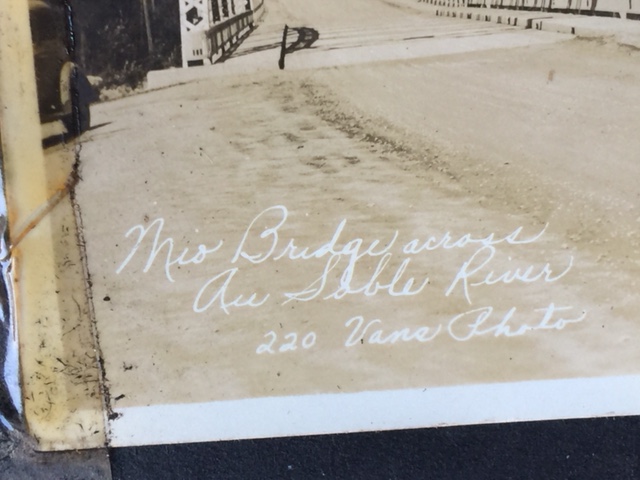 Mio Bridge across
Au Sable River
220 Vans Photo